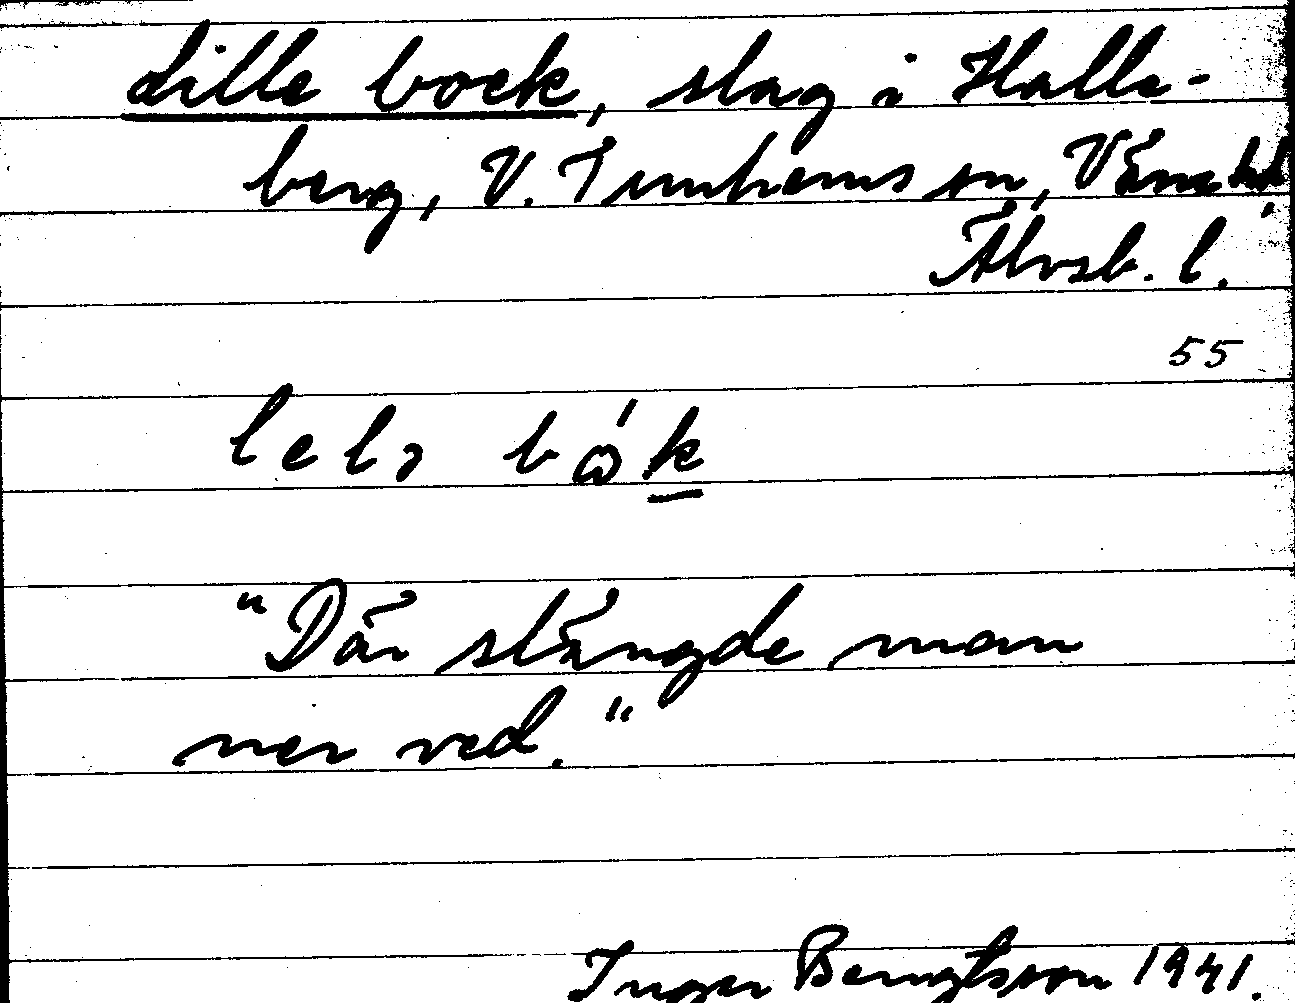 Lille bock, slag i Halle-
berg, V. Tunhems sn, Väne hd
Älvsb. l.
55
lelə bώk
"Där slängde man
ner ved."
Inger Bengtsson 1941.